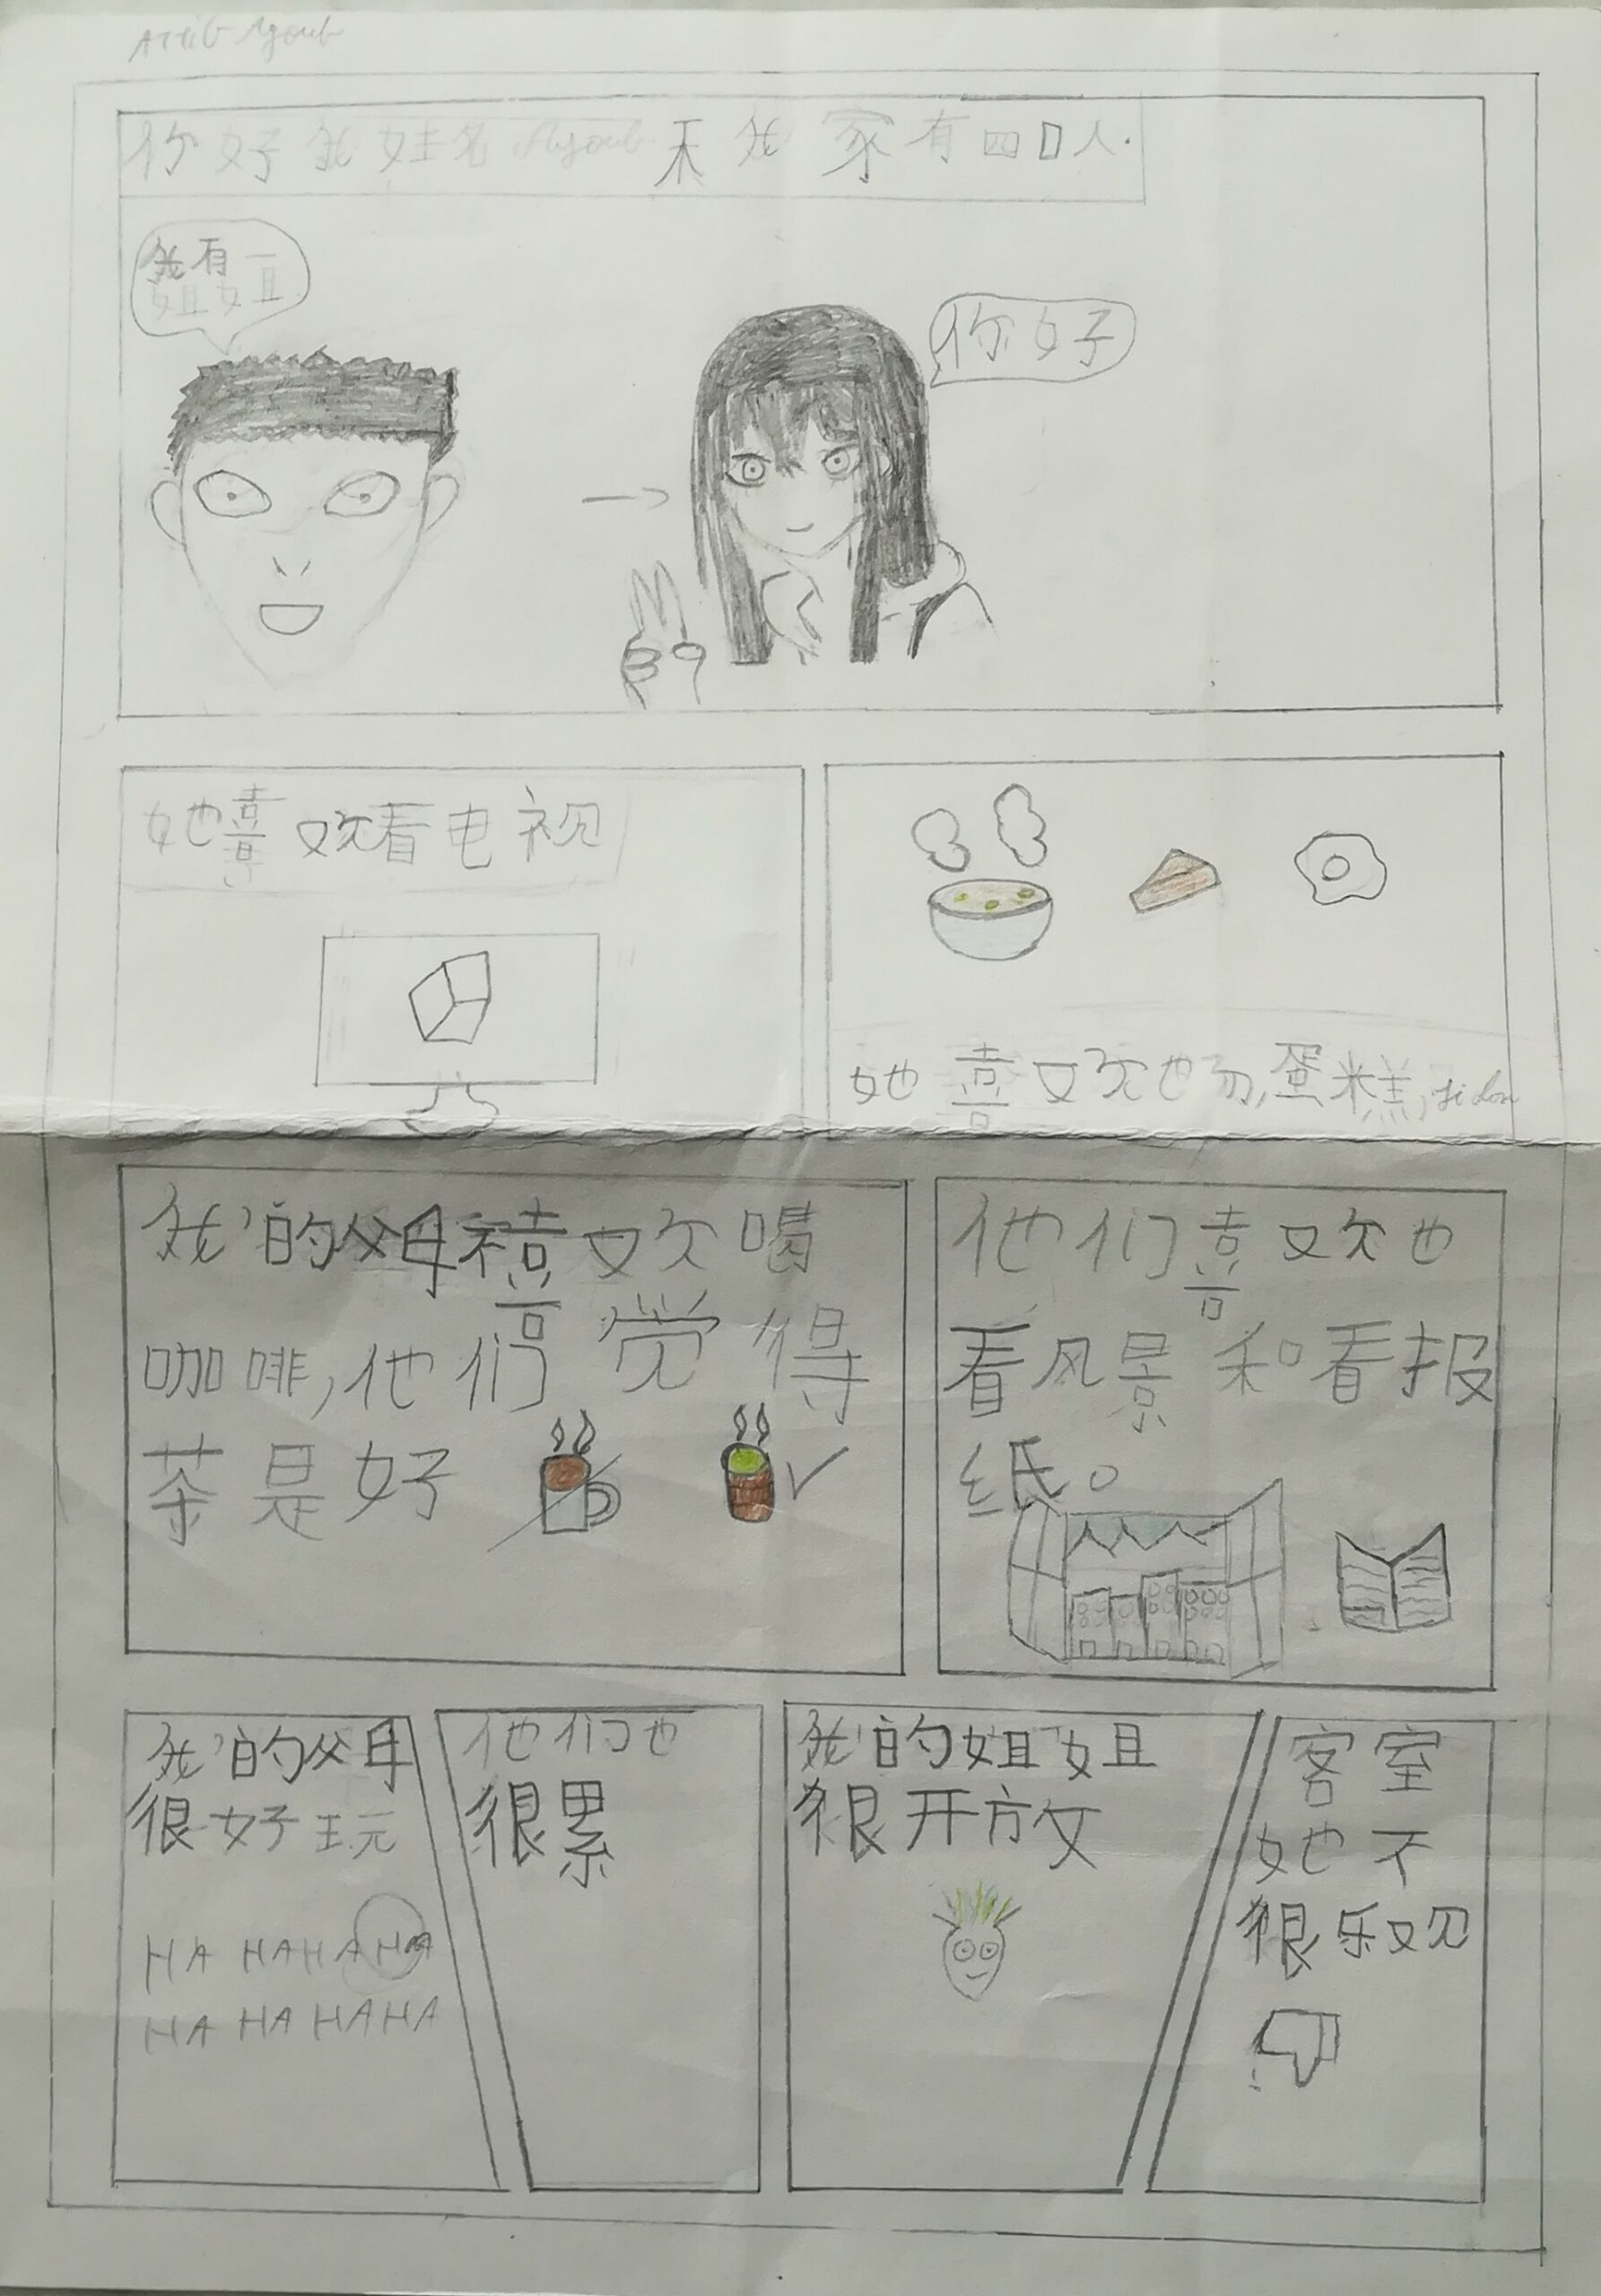 Ayoub
你好我姓名 Ayoub 禾我家有四口人.
我有一
姐姐
你好
她喜欢看电视
她喜欢也 蛋糕, ji dan
我的父母和喜欢喝
咖啡,他们觉得
茶是好
他们喜欢也
看风景和看报
纸。
我的父母
很好玩
HA HAHAHA
HA HA HAHA
他们也
很累
我的姐姐
很开放
客室
她不
很乐观